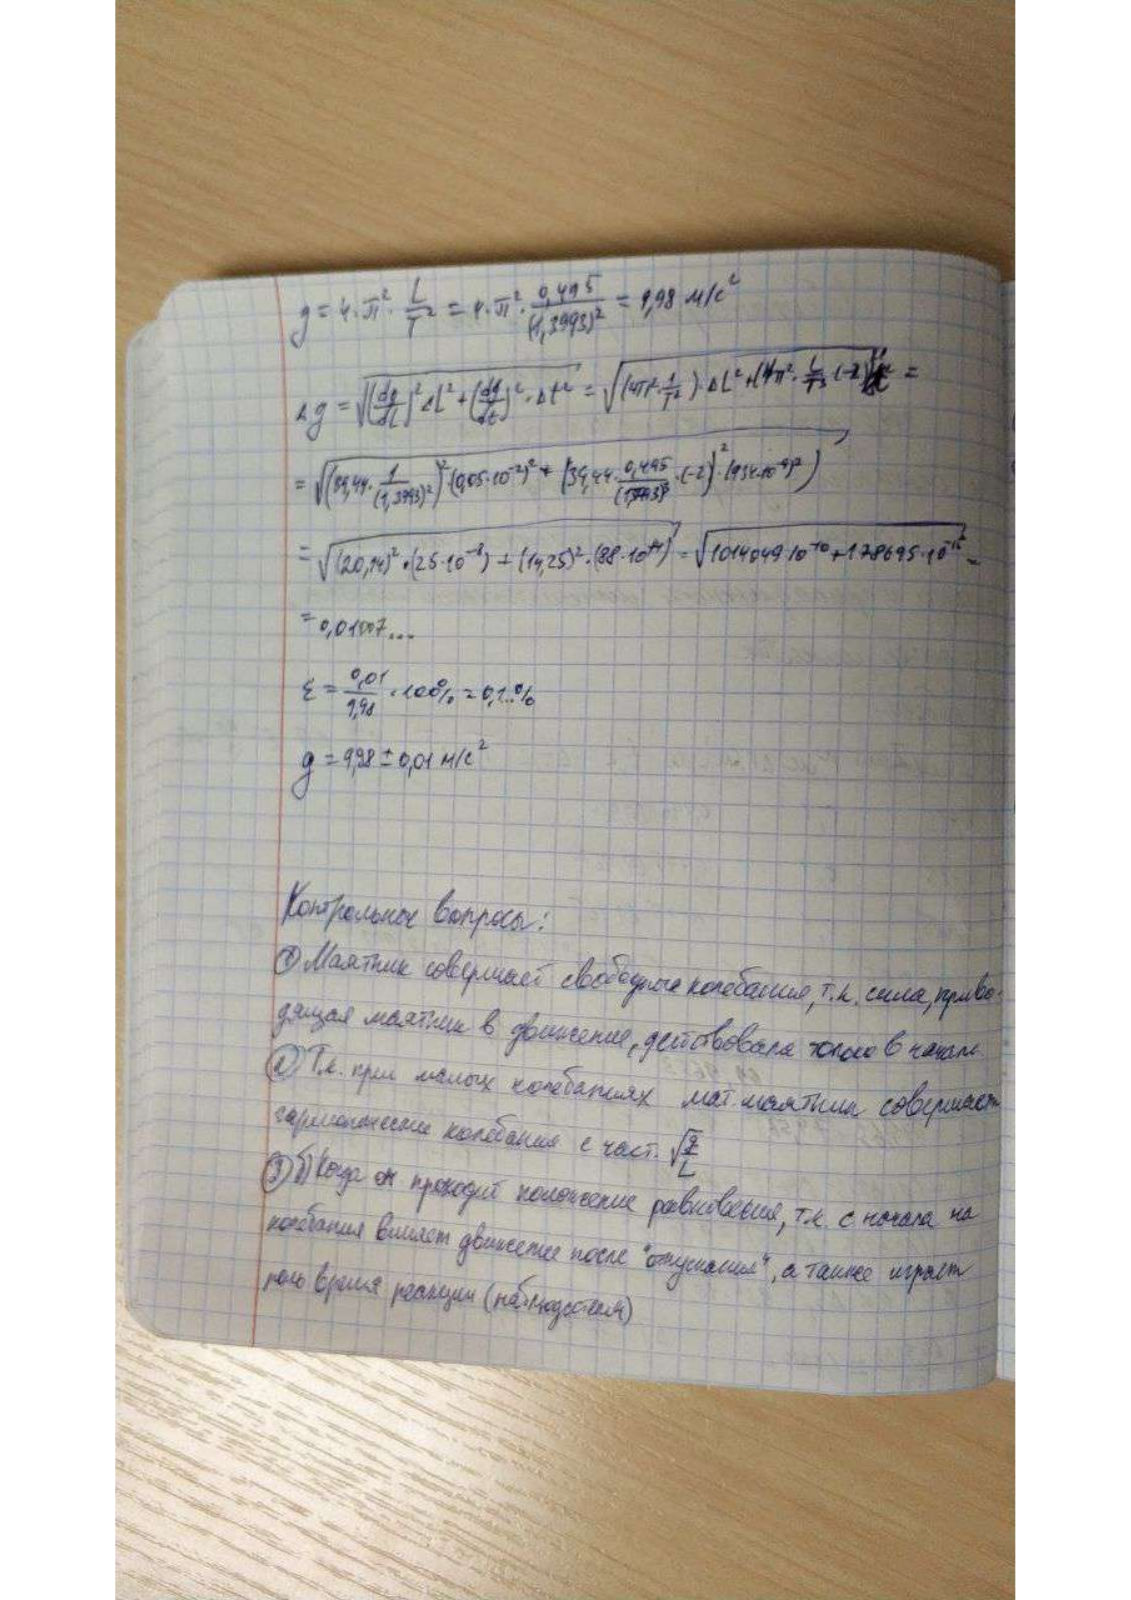 g = 4·π²· L/T² = 4·π²· 0,495/(1,3993)² = 9,98 м/с²
Δg = √((dg/dL)² ΔL² + (dg/dt)²·Δt²) = √((4π)²·1/T²)·ΔL² + (4π²·L/T³·(-2))² =
= √((39,44·1/(1,3993)²)²·(0,05·10⁻²)² + (39,44·0,495/(1,3993)³·(-2))²·(934·10⁻⁹)²)
= √((20,14)²·(25·10⁻⁸) + (14,25)²·(88·10⁻¹⁴)) = √(1014049·10⁻¹⁰ + 178695·10⁻¹⁵) =
= 0,01007...
ε = 0,01/9,98 · 100% = 0,1..%
g = 9,98 ± 0,01 м/с²
Контрольные вопросы:
① Маятник совершает свободные колебания, т.к. сила, приво-
дящая маятник в движение, действовала только в начале
② Т.к. при малых колебаниях мат. маятник совершает
гармонические колебания с част. √(g/L)
③ б) Когда он проходит положение равновесия, т.к. с начала на
колебания влияет движение после "отпускания", а также играет
роль время реакции (наблюдателя)